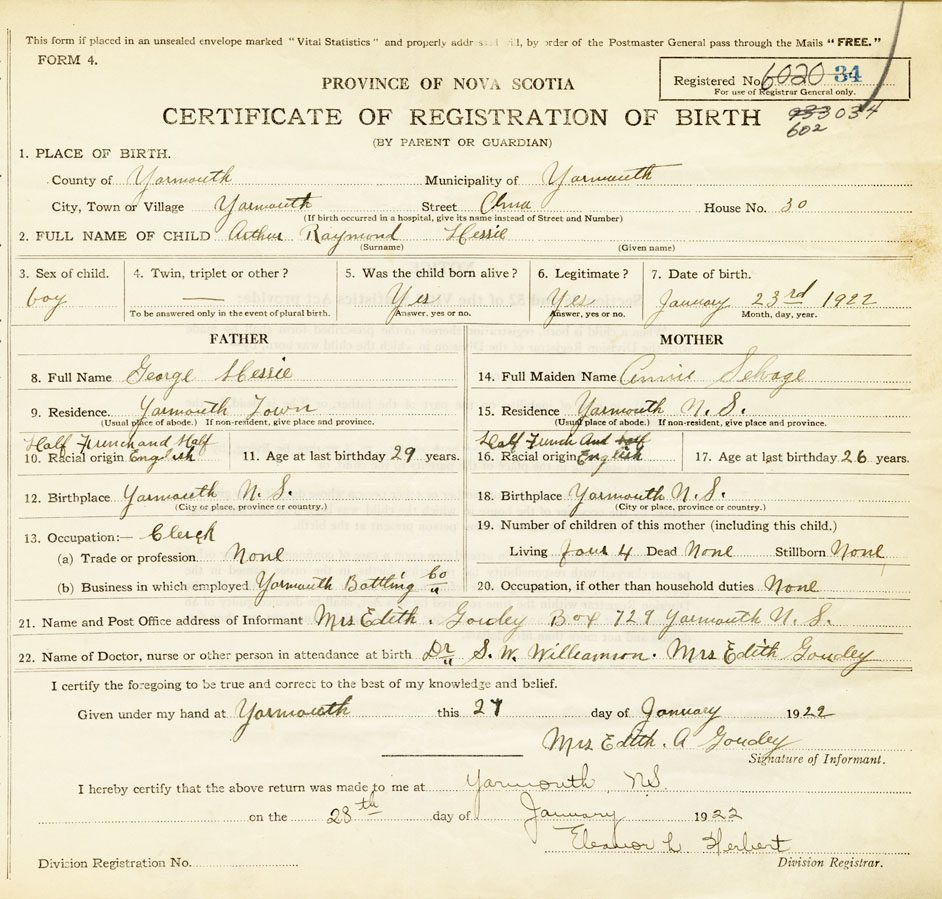 This form if placed in an unsealed envelope marked "Vital Statistics" and properly addr will, by order of the Postmaster General pass through the Mails "FREE."
FORM 4.
PROVINCE OF NOVA SCOTIA
Registered No. 6020 34
For use of Registrar General only.
CERTIFICATE OF REGISTRATION OF BIRTH
034
602
(BY PARENT OR GUARDIAN)
1. PLACE OF BIRTH.
County of Yarmouth Municipality of Yarmouth
City, Town or Village Yarmouth Street House No. 30
(If birth occurred in a hospital, give its name instead of Street and Number)
2. FULL NAME OF CHILD Arthur Raymond Hessie
(Surname) (Given name)
3. Sex of child. 4. Twin, triplet or other? 5. Was the child born alive? 6. Legitimate? 7. Date of birth.
boy — Yes Yes January 23rd 1922
To be answered only in the event of plural birth. Answer, yes or no. Answer, yes or no. Month, day, year.
FATHER MOTHER
8. Full Name George Hessie 14. Full Maiden Name Annie Selvage
9. Residence. Yarmouth Town 15. Residence Yarmouth N. S.
(Usual place of abode.) If non-resident, give place and province. (Usual place of abode.) If non-resident, give place and province.
Half French and Half Half French And half
10. Racial origin English 11. Age at last birthday 29 years. 16. Racial origin English 17. Age at last birthday 26 years.
12. Birthplace Yarmouth N. S. 18. Birthplace Yarmouth N. S.
(City or place, province or country.) (City or place, province or country.)
13. Occupation:— Clerck 19. Number of children of this mother (including this child.)
(a) Trade or profession None Living four 4 Dead None Stillborn None
(b) Business in which employed Yarmouth Bottling Co 20. Occupation, if other than household duties None
21. Name and Post Office address of Informant Mrs Edith. Goudey Box 729 Yarmouth N. S.
22. Name of Doctor, nurse or other person in attendance at birth Dr S. W. Williamson. Mrs Edith Goudey
I certify the foregoing to be true and correct to the best of my knowledge and belief.
Given under my hand at Yarmouth this 27 day of January 1922
Mrs Edith. A Goudey
Signature of Informant.
I hereby certify that the above return was made to me at Yarmouth, N.S.
on the 28th day of January 1922
Eleanor L Herbert
Division Registration No. Division Registrar.